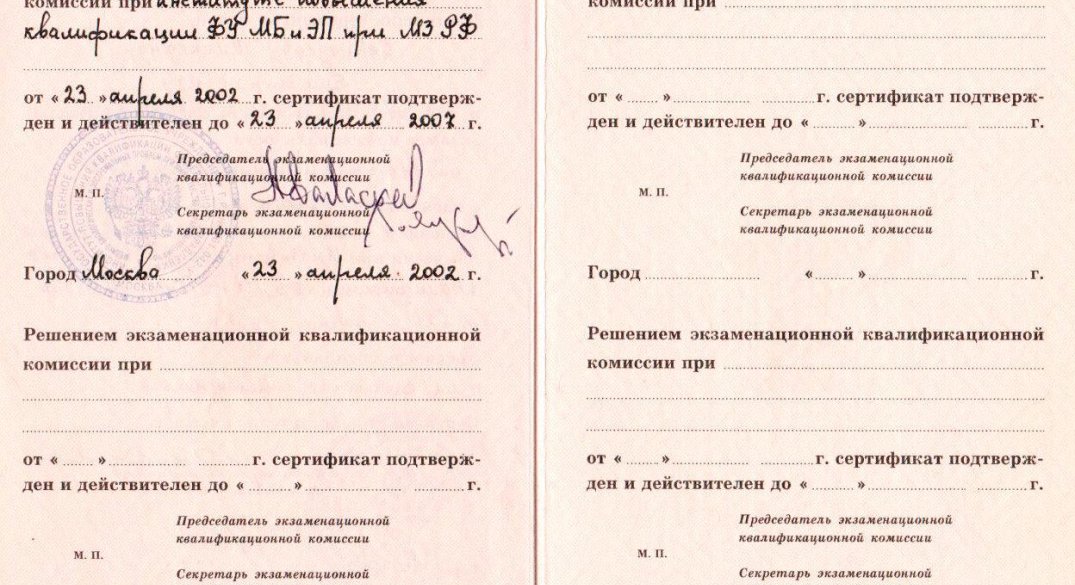 комиссии при институте повышения
квалификации ФУ МБ и ЭП при МЗ РФ
от « 23 » апреля 2002 г. сертификат подтверж-
ден и действителен до « 23 » апреля 2007 г.
Председатель экзаменационной
квалификационной комиссии
М. П.
Секретарь экзаменационной
квалификационной комиссии
Город Москва « 23 » апреля 2002 г.
Решением экзаменационной квалификационной
комиссии при
от « » г. сертификат подтверж-
ден и действителен до « » г.
Председатель экзаменационной
квалификационной комиссии
М. П.
Секретарь экзаменационной
комиссии при
от « » г. сертификат подтверж-
ден и действителен до « » г.
Председатель экзаменационной
квалификационной комиссии
М. П.
Секретарь экзаменационной
квалификационной комиссии
Город « » г.
Решением экзаменационной квалификационной
комиссии при
от « » г. сертификат подтверж-
ден и действителен до « » г.
Председатель экзаменационной
квалификационной комиссии
М. П.
Секретарь экзаменационной